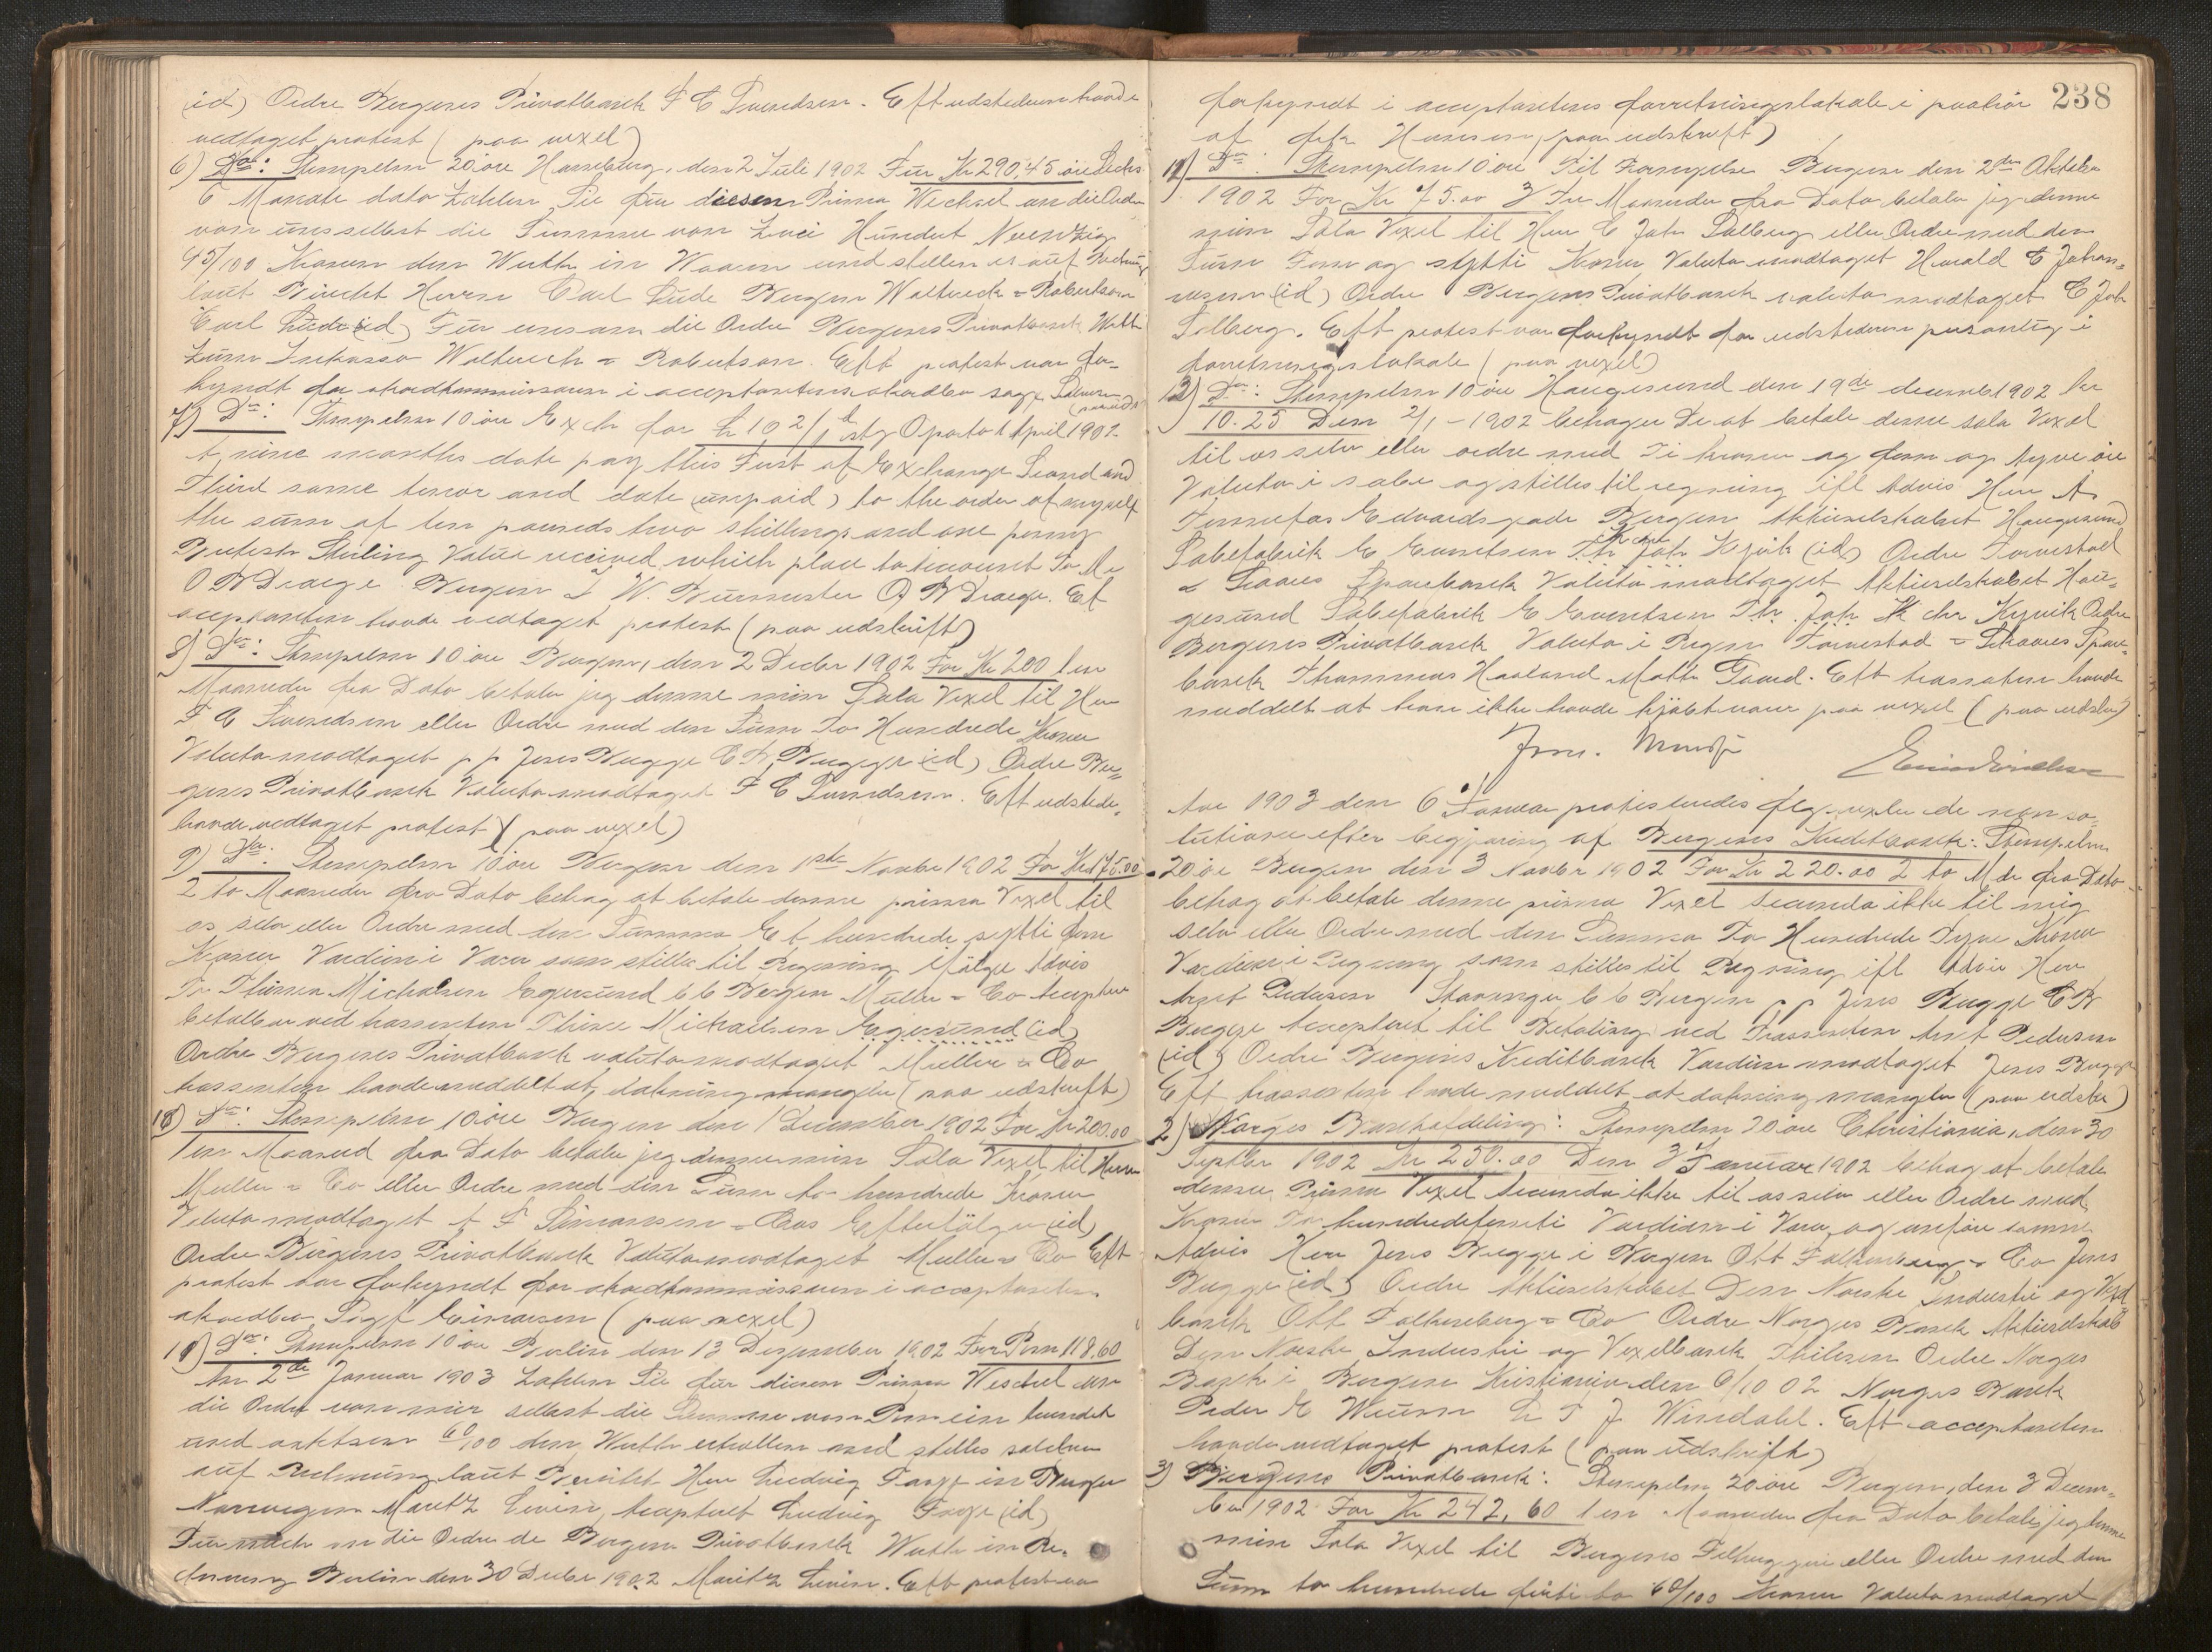 id) Ordre Bergens Privatbank F C Svendsen. Eft udstederen havde
vedtaget protest (paa vexel)
6) Do: Stempelm 20 øre Hamburg, den 2 Juli 1902 Für Kr 290,45 öre Sechs
6 Monate dato zahlen Sie für diesen Prima Wechsel an die Order
von uns selbst die Summe von Zwei Hundert Neunzig
45/100 Kronen den Werth in Waaren und stellen es auf Rechnung
laut Bericht Herrn Carl Lude Bergen Walbrech = Robertson
Carl Lude (id) Für uns an die Ordre Bergens Privatbank Werth
zum Inkasso Walbrech = Robertson. Eft protest var for-
kyndt for akordkommissæren i acceptantens akordbo sagf
(paa uds)
7) Do: Stempelm 10 øre Exch for £ 10 2/1 stg Oporto 1st April 1902
At nine months date pay this First of Exchange Second and
Third same tenor and date unpaid) to the order of myself
the sum of ten pounds two shillings and one penny
British Sterling Value received which place to account To Mr
O B Draege Bergen J W. Burmester O B Draege. Eft
acceptanten havde vedtaget protest (paa udskrift)
8) Do: Stempelm 10 øre Bergen, den 2 Decbr 1902 For Kr 200 1 en
Maaneder fra Dato betaler jeg denne min Sola Vexel til Herr
F C Svendsen eller Ordre med den Sum To Hundrede Kroner
Valuta modtaget p p Jens Bugge C B, Bugge (id) Ordre Ber-
gens Privatbank Valuta modtaget F C Svendsen. Eft udsteder
havde vedtaget protest (paa vexel)
9) Do: Stempelm 10 øre Bergen den 1ste Novbr 1902 For Kr 175.00
2 to Maaneder fra Dato behag at betale denne prima Vexel til
os selv eller Ordre med den Summa Et hundrede sytti fem
Kroner Værdien i Varer som stilles til Regning ifølge Advis
Fr. Thina Michalsen Egersund b b Bergen Müller = Co Accepteret
betalbar ved trassenten Thina Michalsen Egersund (id)
Ordre Bergens Privatbank valuta modtaget Müller = Co
trassenten havde meddelt at, dækning mangler (paa udskrift)
10) Do: Stempelm 10 øre Bergen den 1 December 1902 For Kr 200.00
1 en Maaned fra Dato betaler jeg denne min Sola Vexel til Herrer
Müller = Co eller Ordre med den Sum to hundrede Kroner
Valuta modtaget A F Simonsen = Cos Efterfölger (id)
Ordre Bergens Privatbank Valuta modtaget Müller = Co Eft
protest var forkyndt for akordkommissæren i acceptantens
akordbo Sagf Einarsen (paa vexel)
11) Do: Stempelm 10 øre Berlin den 13 Dezember 1902 For Rm 118.60
Am 2te Januar 1903 zahlen Sie für diesen Prima Wechsel an
die Ordre von mir selbst die Summe von Rm ein hundert
und achtzen 60/100 den Werth erhalten und stelles solchen
auf Rechnung laut Bericht Herr Ludvig Farge in Bergen
Norwegen Moritz Levin, Acceptert Ludvig Farge (id)
Für mich an die Ordre de Bergens Privatbank Werth in Re-
chnung Berlin den 30 Decbr 1902 Moritz Levin. Eft protest var
238
forkyndt i acceptantens forretningslokale i paahør
af frk Hansen, (paa udskrift)
12) Do: Stempelm 10 øre Til Forny­else Bergen den 2den Oktober
1902 For Kr 75.00 3 Tre Maaneder fra Dato betaler jeg denne
min Sola Vexel til Herr C Joh Solberg eller Ordre med den
Sum Fem og sytti Kroner Valuta modtaget Harald C Johan-
nesen (id) Ordre Bergens Privatbank valuta modtaget C Joh
Solberg. Eft protest var forkyndt for udstederen personlig i
forretningslokale (paa vexel)
13) Do: Stempelm 10 øre Haugesund den 19de decembr 1902 Kr
10.25 Den 2/1 - 1902 behager De at betale denne sola Vexel
til os selv eller ordre med Ti kroner og fem og tyve øre
Valuta i sæbe og stilles til regning ifl Advis Herr A.
Edvardsgade Bergen Aktieselskabet Haugesund
Sæbefabrik E Evertsen Th Joh Kjvik (id) Ordre Torvestad
= Skaares Sparebank Valuta modtaget Aktieselskabet Hau-
gesund Sæbefabrik E Evertsen Th. Joh Chr Kyvik Ordre
Bergens Privatbank Valuta i Regn Torvestad = Skaares Spare-
bank Thommas Haaland Math Gaard. Eft trassaten havde
meddelt at han ikke havde kjøbt varer paa vexel (paa udskr)

Aar 1903 den 6 Januar protesteredes flg vexler de non so-
lutione efter begjæring af Bergens Kreditbank: Stempelm
20 øre Bergen den 3 Novbr 1902 For Kr 220.00 2 to Mdr fra Dato
behag at betale denne prima Vexel Secunda ikke til mig
selv eller Ordre med den Summa To Hundrede Tyve Kroner
Værdien i Regning som stilles til Regning ifl Advis Herr
Arnt Pedersen Stavanger b b Bergen p p Jens Bugge C B
Bugge Accepteret til Betaling ved Trassenten Arnt Pedersen
(id) Ordre Bergens Kreditbank Værdien modtaget Jens Bugge
Eft trassenten havde meddelt at dækning mangler (paa udskr)
2) Norges Bankafdeling: Stempelm 20 øre Christiania, den 30
Septbr 1902 Kr 250.00 Den 3 Januar 1902 behag at betale
denne Prima Vexel Secunda ikke til os selv eller Ordre med
Kroner To hundredefemti Værdien i Varer og anføre samme
Advis Herr Jens Bugge i Bergen Ott Falkenberg = Co Jens
Bugge (id) Ordre Aktieselskabet Den Norske Industri og Vexel
bank Ott Falkenberg = Co Ordre Norges Bank Aktieselskab
Den Norske Industri og Vexelbank Thilesen Ordre Norges
Bank i Bergen Kristiania den 6/10 02 Norges Bank
Peder E Waum J Windahl. Eft acceptanten
havde vedtaget protest (paa udskrift)
3) Bergens Privatbank: Stempelm 20 øre Bergen, den 3 Decem-
ber 1902 For Kr 242,60 1 en Maaneder fra Dato betaler jeg denne
min Sola Vexel til Bergens eller Ordre med den
Sum to hundrede firti to 60/100 Kroner Valuta modtaget